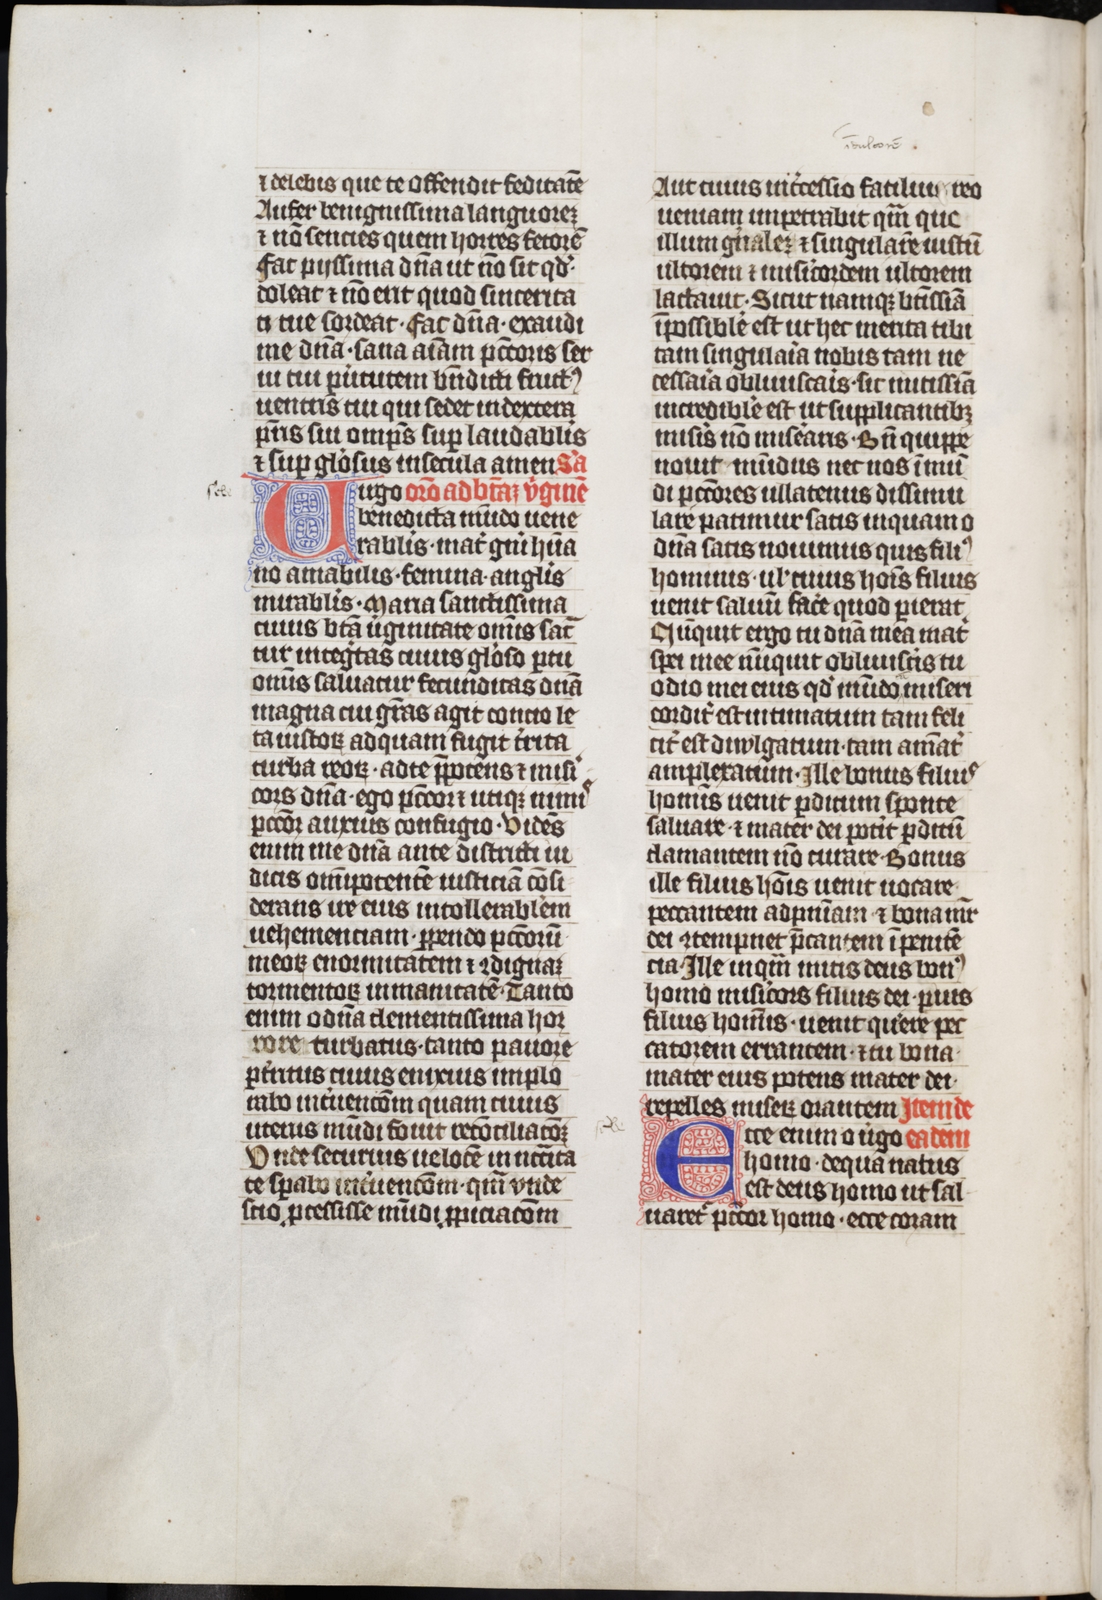 ⁊ delebis que te offendit feditatē
Aufer benignissima languorez
⁊ nō sencies quem horres fetorē
Fac pijssima dn̄a ut nō sit qd̛
doleat ⁊ nō erit quod sincerita
ti tue sordeat · Fac dn̄a · exaudi
me dn̄a · sana aīam pctōris ser
ui tui p̲ uirtutem bn̄dicti fruct⁹
uentris tui qui sedet in dextera
pr̄is sui omp̄s sup̲ laudablis
⁊ sup̲ glōsus in secula amen Sc̄a
Uirgo orō ad btāȝ v̛ginē
benedicta mūdo uene
rablis · mat̛ gn̄i hūa
no amabilis · femina · anglīs
mirablis · Maria sanctissima
cuius btā ūginitate om̄is sac̄
tur integ̛tas cuius glōso p̲tu
om̄is saluatur fecunditas dn̄a
magna cui gr̄as agit concio le
ta iustoꝝ ad quam fugit t̛rita
turba reoꝝ · ad te p̄potens ⁊ misi
cors dn̄a · ego pctōr ⁊ utiqȝ nimiˢ
pctōr anxius confugio · Vidēs
enim me dn̄a ante districti iu
dicis omīpotentē iusticiā cōsi
derans ire eius intollerablēm
uehemenciam · p̲pendo pctōrū
meoꝝ enormitatem ⁊ ꝯdignaȝ
tormentoꝝ inmanitatē · Tanto
enim o dn̄a clementissima hor
rore turbatus · tanto pauore
p̲t̛ritus cuius enixius implo
rabo int̛uencōm quam cuius
uterus mūdi fouit recōciliacōȝ
Vnde securius uelocē in nccīta
te sp̲abo int̛uencōm · qm̄ vnde
scio p̲cessisse mūdi p̲piciacōm
Aut cuius int̛cessio facilius reo
ueniam inpetrabit qm̄ que
illum gn̄alēȝ ⁊ singularē iustū
ultorem ⁊ misic̛ordem ultorem
lactauit · Sicut namqȝ btīssiā
īpossiblē est ut hec merita tibi
tam singulaīa nobis tam ne
cessaīa obliuiscaīs · sic mitissiā
incrediblē est ut supplicantibȝ
misīs nō miseāris · Bn̄ quippe
nouit mūdus nec nos ī mū
di pctōres ullatenus dissimu
lare patimur satis inquam o
dn̄a satis nouimus quis fili⁹
hominis · ul̛ cuius hoīs filius
uenit saluū facē quod p̲ierat
Nūquit ergo tu dn̄a mea mat̛
spei mee nūquit obliuiscīs tu
odio mei eius qd̛ mūdo miseri
cordit̛ est intimatum tam feli
cit̛ est diwlgatum · tam amāt̛
amplexatum · Ille bonus filiuˢ
homīs uenit p̲ditum sponte
saluare · ⁊ mater dei potīt p̲ditū
clamantem nō curare · Bonus
ille filius hōis uenit uocare
peccantem ad pnīam · ⁊ bona mr̄
dei ꝯtempnet p̄cantem ī penitē
cia · Ille inqm̄ mitis deus bon⁹
homo misic̛ors filius dei · pius
filius homīs · uenit quēre pec
catorem errantem · ⁊ tu bona
mater eius potens mater dei ·
repelles miseꝝ orantem Item de
Ecce enim o ưgo eadem
homo · de qua natus
est deus homo ut sal
uaret̛ pctōr homo · ecce coram